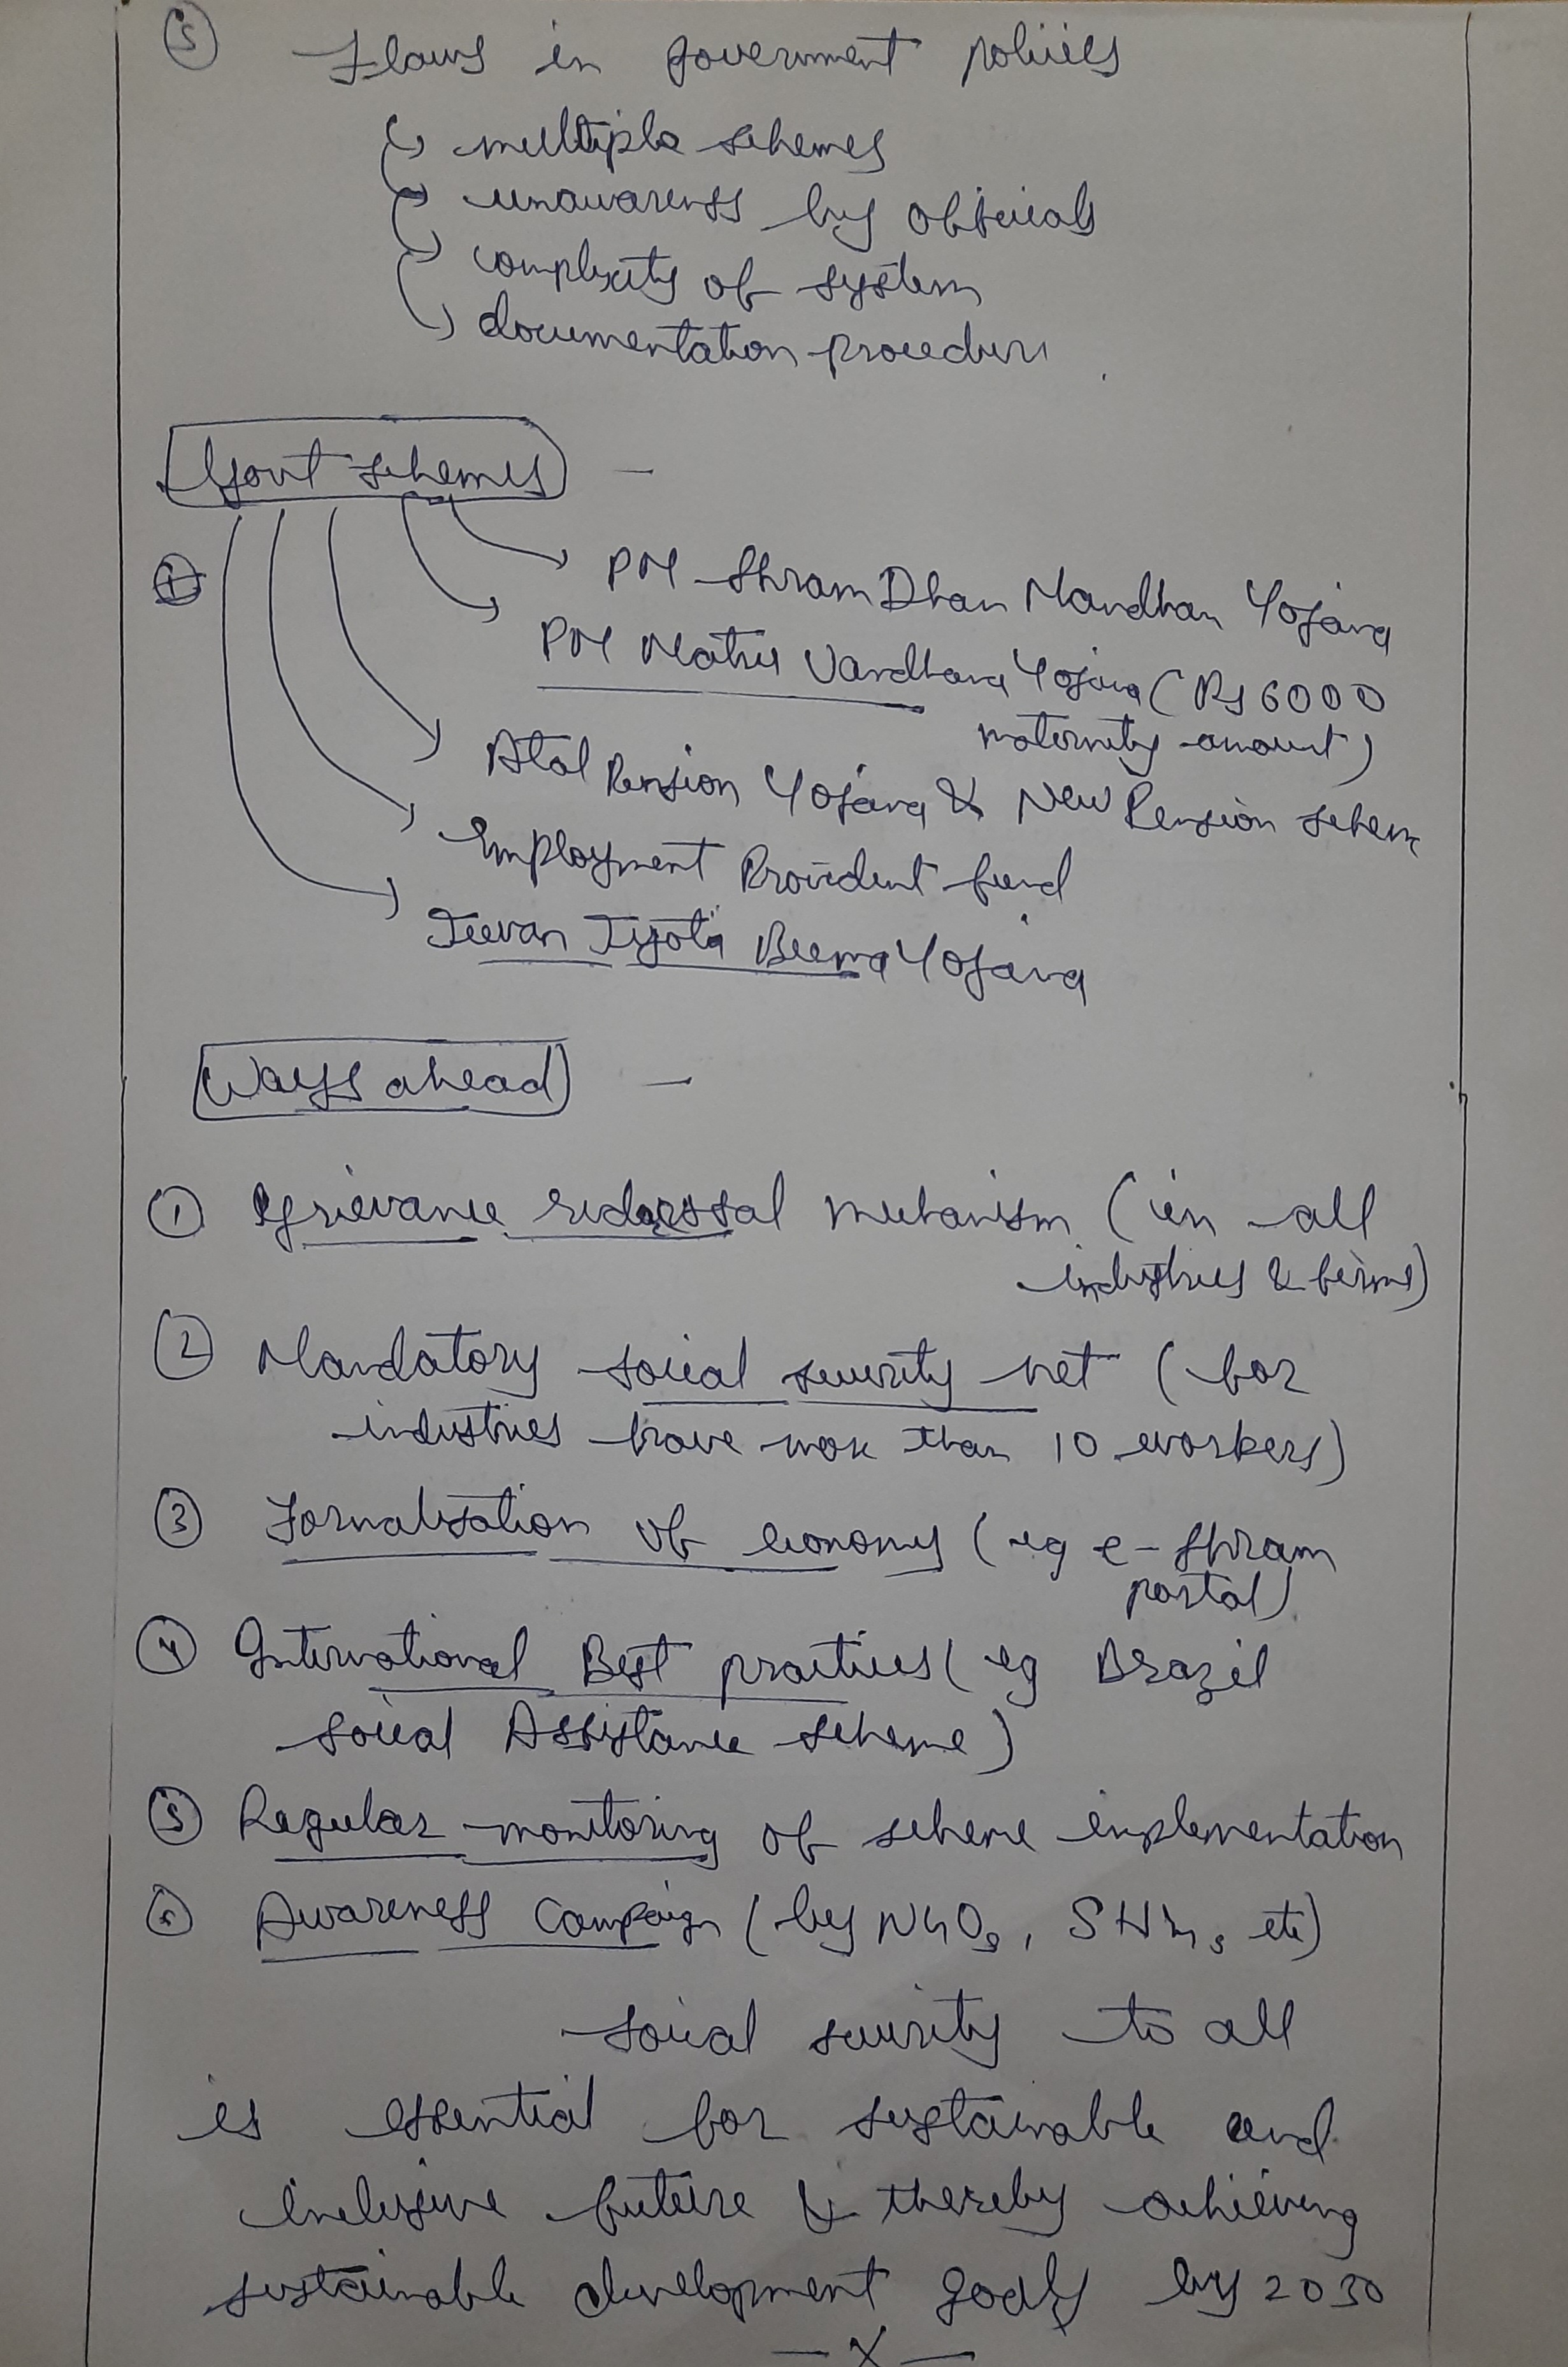 5 Flaws in government policies
↳ multiple schemes
↳ unawarenss by officials
↳ complexity of system
↳ documentation procedure
Govt schemes —
1
PM Shram Dhan Mandhan Yojana
PM Matru Vandhana Yojana (Rs 6000
maternity amount)
Atal Pension Yojana & New Pension schem
Employment Provident fund
Jeevan Jyoti Beema Yojana
Ways ahead —
1 Grievance redorssal mechanism (in all
industries & firms)
2 Mandatory social security net (for
industries have more than 10 workers)
3 Formalisation of economy (eg e-Shram
portal)
4 International Best practices (eg Brazil
social Assistance scheme)
5 Regular monitoring of scheme implementation
6 Awareness Campaign (by NGOs, SHGs, etc)
social security to all
is essential for sustainable and
inclusive future & thereby achieving
sustainable development goals by 2030
— X —